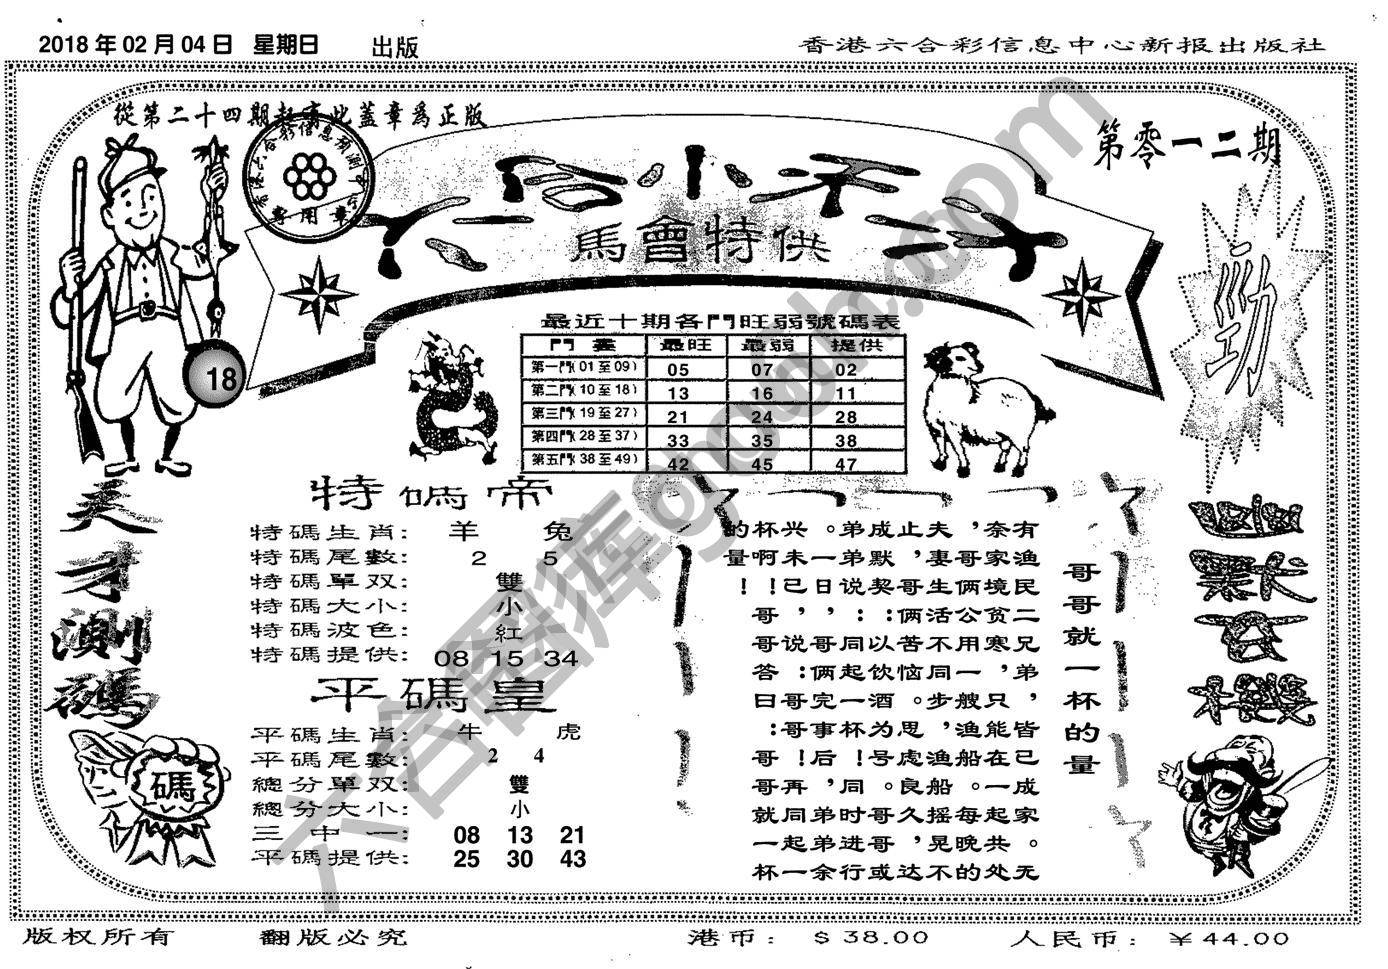 2018年02月04日 星期日 出版
香港六合彩信息中心新报出版社
從第二十四期起寄此蓋章爲正版
第零一二期
六合小子
馬會特供
勁
18
最近十期各門旺弱號碼表
門蓋 最旺 最弱 提供
第一門(01至09) 05 07 02
第二門(10至18) 13 16 11
第三門(19至27) 21 24 28
第四門(28至37) 33 35 38
第五門(38至49) 42 45 47
天才測碼
碼
特碼帝
特碼生肖: 羊 兔
特碼尾數: 2 5
特碼單双: 雙
特碼大小: 小
特碼波色: 紅
特碼提供: 08 15 34
平碼皇
平碼生肖: 牛 虎
平碼尾數: 2 4
總分單双: 雙
總分大小: 小
三中一: 08 13 21
平碼提供: 25 30 43
哥哥就一杯的量
有渔民二兄弟，皆已成家。无
奈家境贫寒，只能在一起共处
，哥俩公用一艘渔船。每晚的
夫妻生活不同步，渔船摇晃不
止，哥俩苦恼。思虎良久，达
成默契：以饮酒为号。哥哥或
弟弟说：同起一杯！同时进行
。一日，哥俩完事后，弟弟余
兴未已，说：哥哥，再同起一
杯啊！哥哥答曰：哥哥就一杯
的量！
版权所有 翻版必究 港币：＄38.00 人民币：￥44.00
六合图库